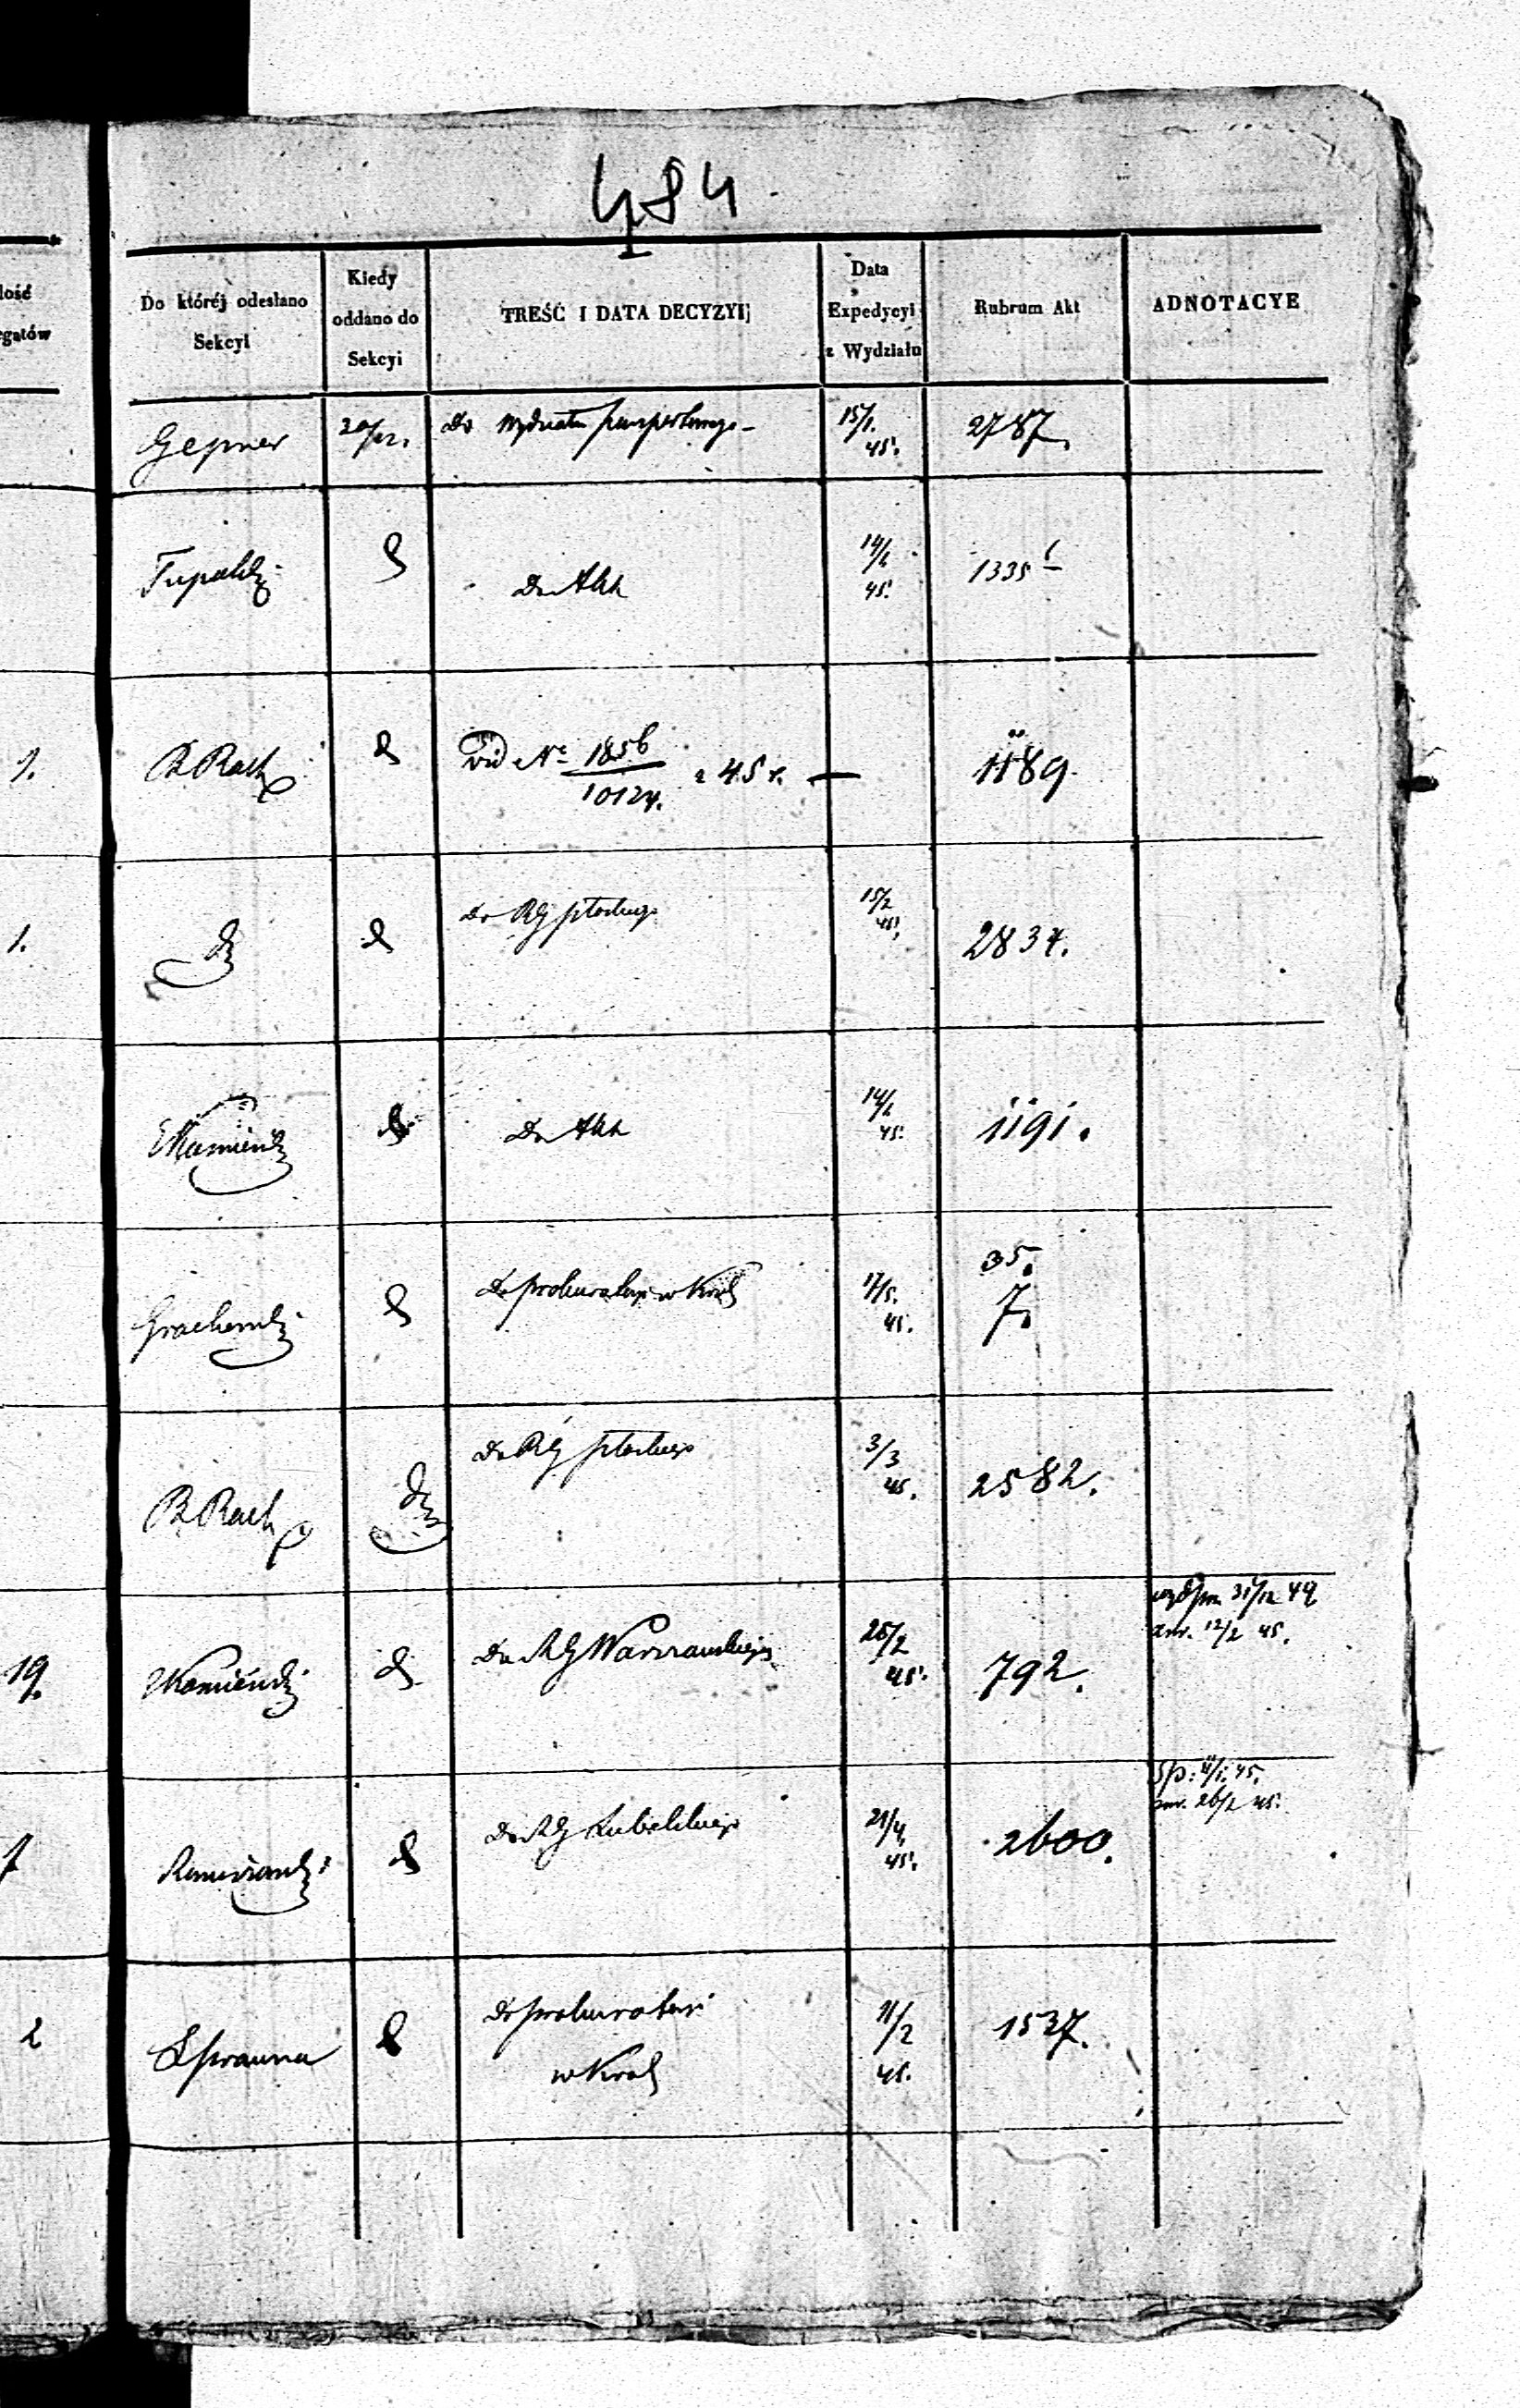 484.
lość
egatów
Do któréj odesłano
Sekcyi
Kiedy
oddano do
Sekcyi
TREŚĆ I DATA DECYZYIJ
Data
Expedycyi
z Wydziału
Rubrum Akt
ADNOTACYE
Gepner 20/12. Do Wydziału paszportowego - 15/1. 45. 2787.
Do Akt 14/1 45. 1335
1. R. Rath d vid No 1856/10124. z 45 r. — 1189.
1. d d Do RG płockiego 15/2 45. 2837.
Kamieński d Do Akt 14/1 45. 1191.
d Do prokuratoryi w Król 17/5. 45. 35. 7.
R. Rath d Do RG płockiego 3/3 45. 2582.
19. Kamieński d Do RG Warszawskiego 26/2 45. 792. 31/12 44 12/2 45.
d Do RG Lubelskiego 21/4 45. 2600. Sp: 11/1. 45. 26/2 45.
2 d Do prokuratoryi
w Król 11/2 45. 1537.